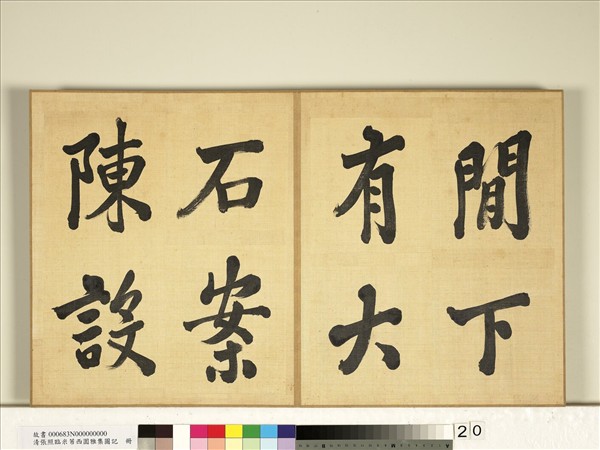 間下
有大
石案
陳設
故書 000683N000000000
清張照臨米芾西園雅集圖記 冊
20